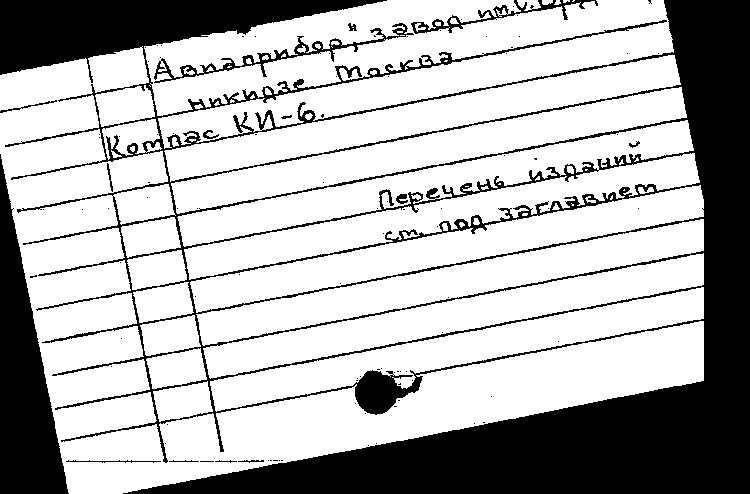 „Авиаприбор", завод им. С. Орд
никидзе Москва
Компас КИ-6.
Перечень изданий
см. под заглавием